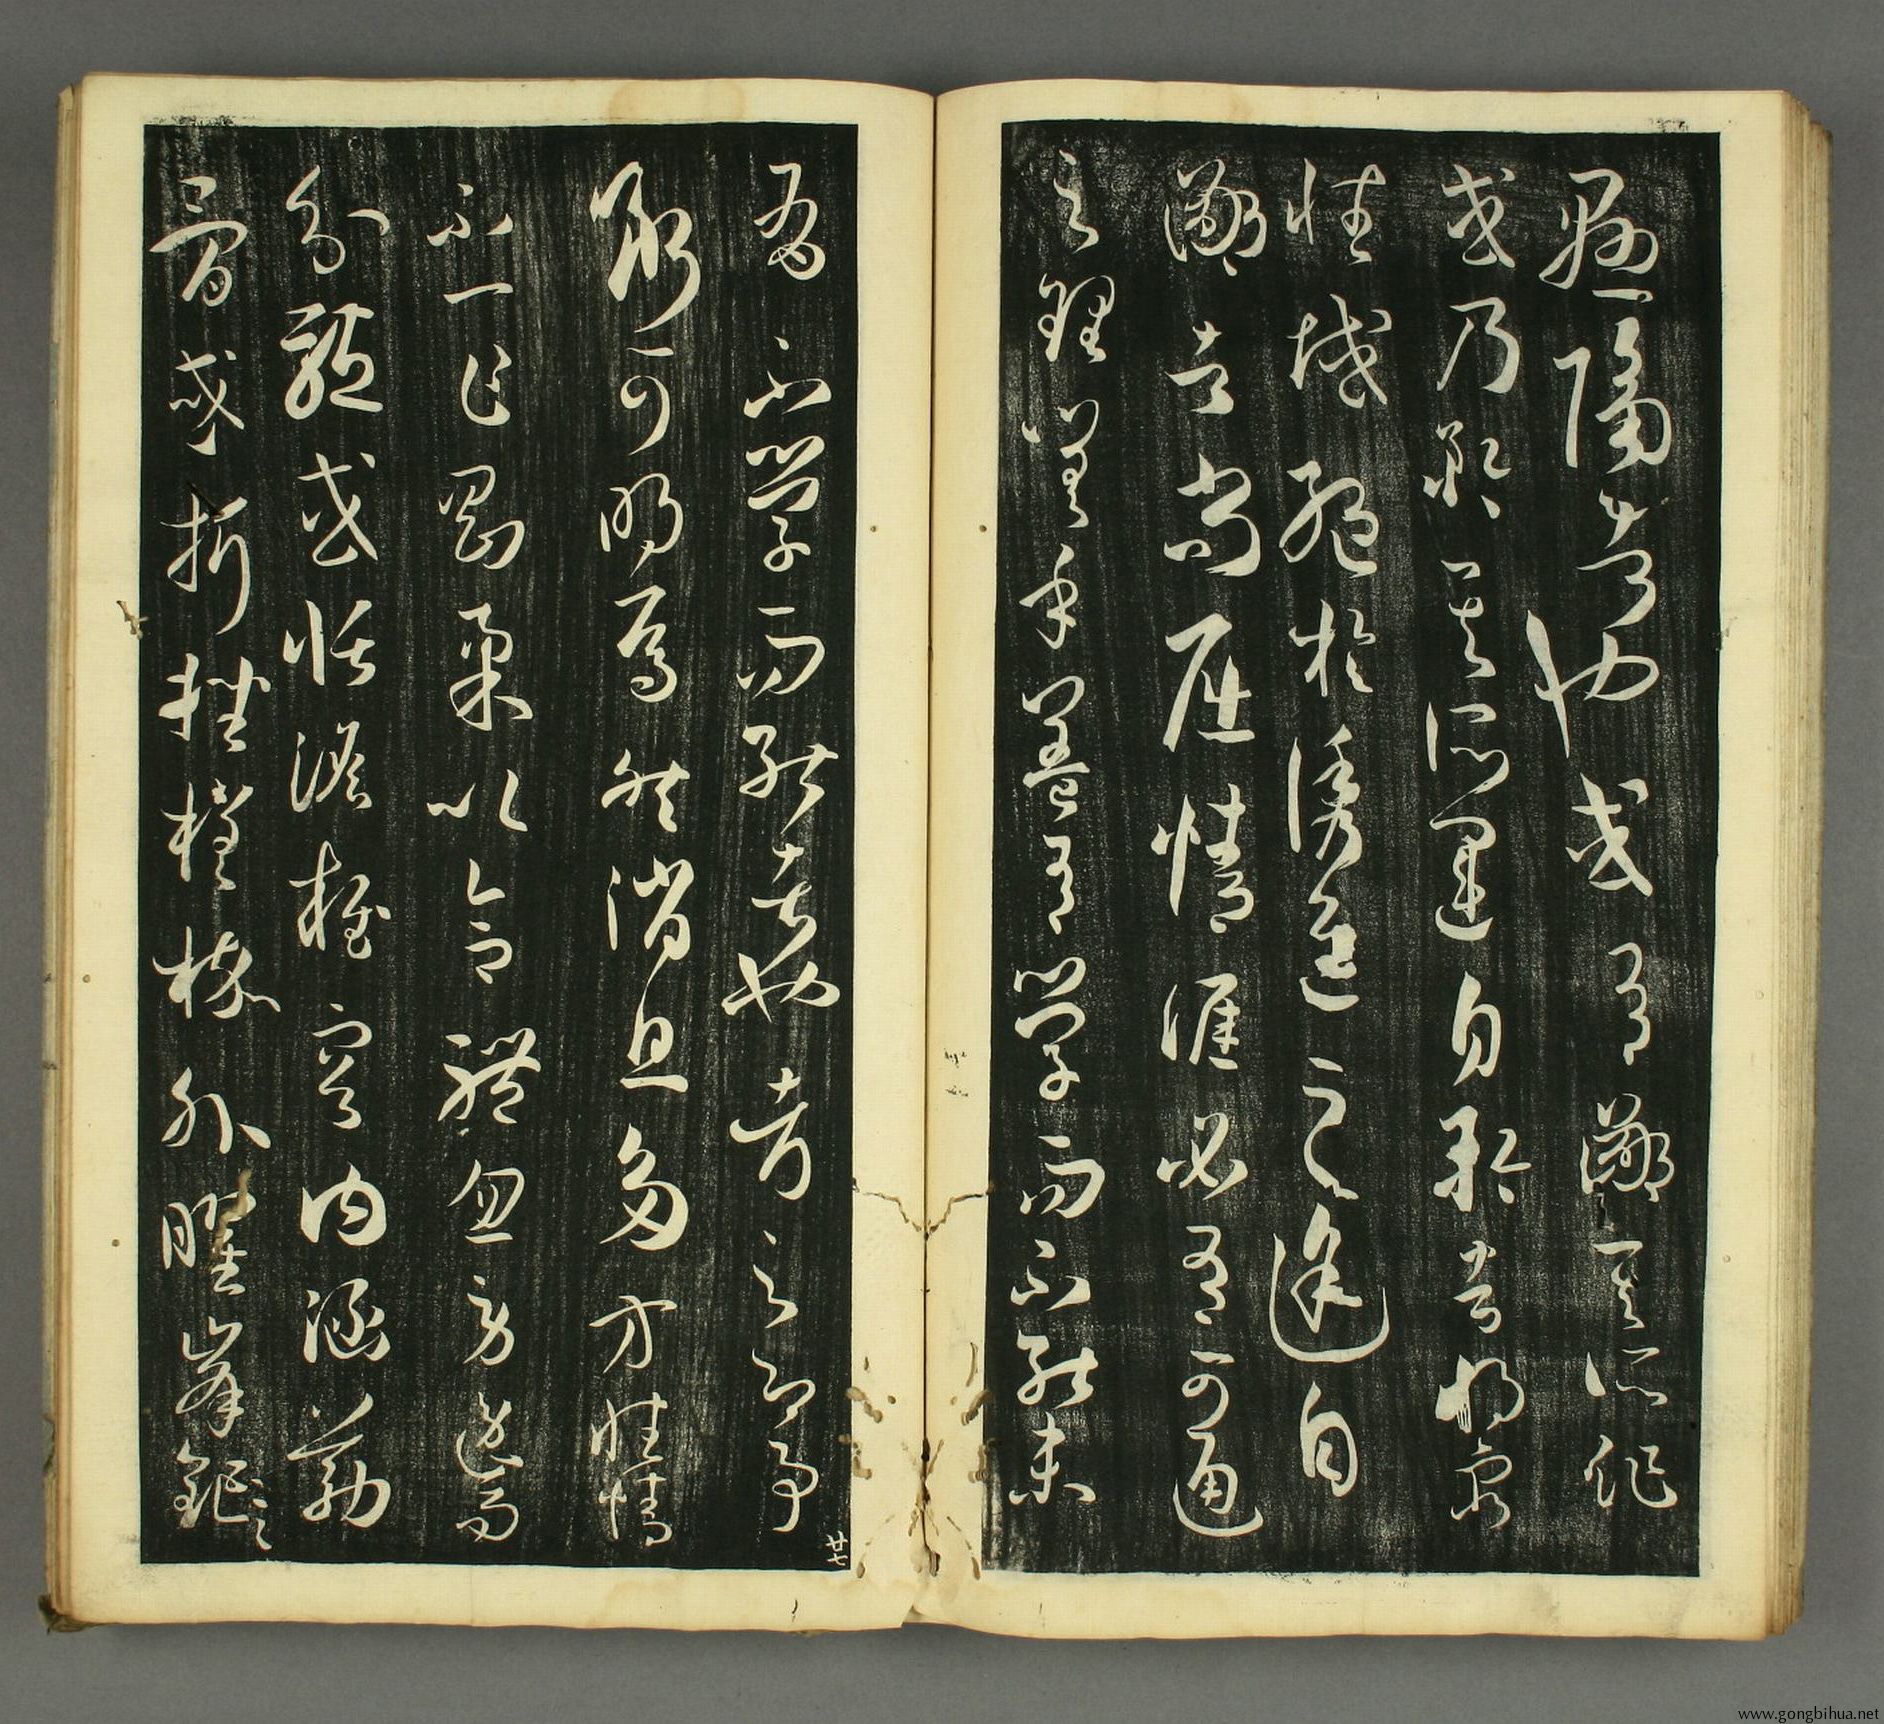 懸隔者也或有鄙其所作
或乃矜其所運自矜者將窮
性域絕於誘進之途自
鄙者尚屈情涯必有可通
之理嗟乎蓋有學而不能未
有不學而能者也考之即事
斷可明焉然消息多方性情
不一乍剛柔以合體忽勞逸而
分驅或恬憺雍容內涵筋
骨或折挫槎枿外曜峯鋩
廿七
www.gongbihua.net